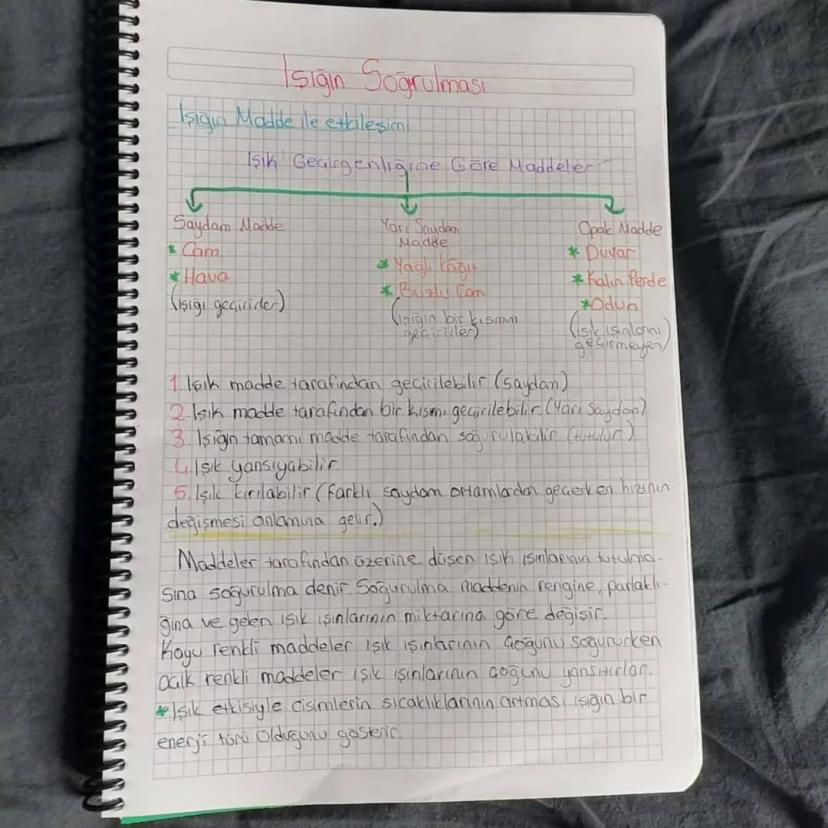 Işığın Soğrulması
Işığın Madde ile etkileşimi
Işık Geçirgenliğine Göre Maddeler
Saydam Madde
* Cam
* Hava
(ışığı geçirirler)
Yarı Saydam
Madde
* Yağlı Kağıt
* Buzlu Cam
(ışığın bir kısmını
geçirirler)
Opak Madde
* Duvar
* Kalın Perde
* Odun
(ışık ışınlarını
geçirmeyen)
1. Işık madde tarafından geçirilebilir (saydam)
2. Işık madde tarafından bir kısmı geçirilebilir. (Yarı saydam)
3. Işığın tamamı madde tarafından soğurulabilir (tutulur)
4. Işık yansıyabilir.
5. Işık kırılabilir (Farklı saydam ortamlardan geçerken hızının
değişmesi anlamına gelir.)
Maddeler tarafından üzerine düşen ışık ışınlarının tutulma-
sına soğurulma denir. Soğurulma maddenin rengine, parlaklı-
ğına ve gelen ışık ışınlarının miktarına göre değişir.
Koyu renkli maddeler ışık ışınlarının çoğunu soğururken
açık renkli maddeler ışık ışınlarının çoğunu yansıtırlar.
* Işık etkisiyle cisimlerin sıcaklıklarının artması ışığın bir
enerji türü olduğunu gösterir.